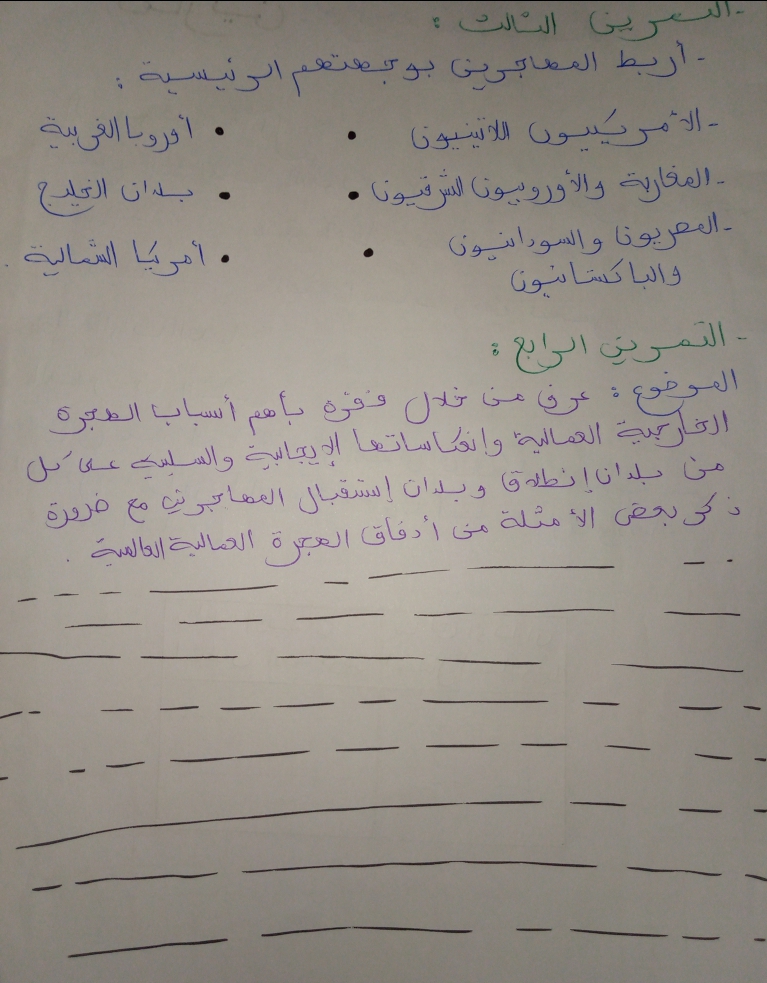 - التمرين الثالث :
- أربط المهاجرين بوجهتهم الرئيسية :
- الأمريكيون اللاتينيون • • أوروبا الغربية
- المغاربة والأوروبيون الشرقيون • • بلدان الخليج
- المصريون والسودانيون • • أمريكا الشمالية
والباكستانيون
- التمرين الرابع :
الموضوع : عرف من خلال فقرة بأهم أسباب الهجرة
الخارجية العمالية وانعكاساتها الإيجابية والسلبية على كل
من بلدان إنطلاق وبلدان إستقبال المهاجرين مع ضرورة
ذكر بعض الأمثلة من أدفاق الهجرة العمالية العالمية .